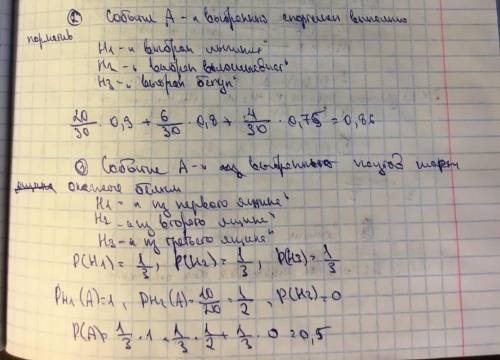 ① Событие А - „ выбранный спортсмен выполнил
норматив
H1 - „ выбран лыжник“
H2 - „ выбран велосипедист“
H3 - „ выбран бегун“
20/30 · 0,9 + 6/30 · 0,8 + 4/30 · 0,75 = 0,86
② Событие А - „ из выбранного наугад шары
ящика окажется белым
H1 - „ из первого ящике“
H2 - „ из второго ящике“
H2 - „ из третьего ящике“
P(H1) = 1/3, P(H2) = 1/3, P(H3) = 1/3
PH1(A) = 1, PH2(A) = 10/20 = 1/2, P(H3) = 0
P(A) = 1/3 · 1 + 1/3 · 1/2 + 1/3 · 0 = 0,5